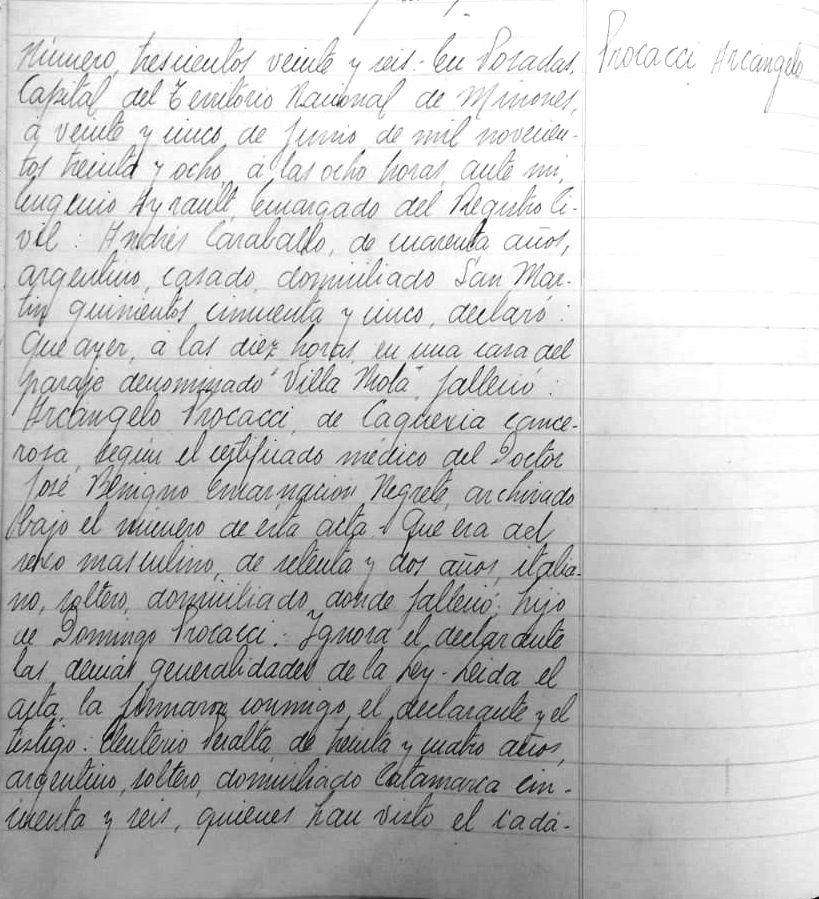 Número, trescientos veinte y seis.- En Posadas,
Capital del Territorio Nacional de Misiones,
á veinte y cinco de Junio de mil novecien-
tos treinta y ocho, á las ocho horas, ante mi,
Eugenio Ayrault, Encargado del Registro Ci-
vil: Andrés Caraballo, de cuarenta años,
argentino, casado, domiciliado San Mar-
tin quinientos cincuenta y cinco, declaró:
Que ayer, á las diez horas, en una casa del
paraje denominado "Villa Mola", falleció:
Arcángelo Procacci, de Caquexia cance-
rosa, según el certificado médico del Doctor
José Benigno Encarnación Negrete, archivado
bajo el número de esta acta.- Que era del
sexo masculino, de setenta y dos años, italia-
no, soltero, domiciliado donde falleció; hijo
de Domingo Procacci.- Ignora el declarante
las demás generalidades de la Ley.- Leida el
acta, la firmaron conmigo el declarante y el
testigo: Eleuterio Peralta, de treinta y cuatro años,
argentino, soltero, domiciliado Catamarca cin-
cuenta y seis, quienes han visto el cadá-
Procacci Arcángelo